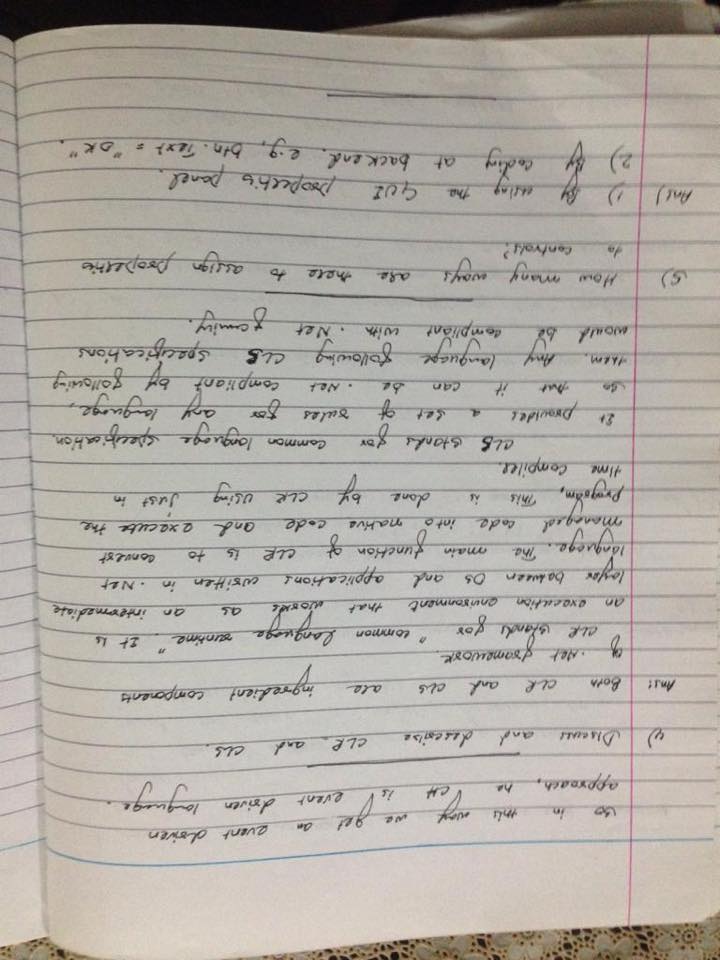 so in this way we get an event driven
approach, he VC# is event driven language.
4) Discuss and describe CLR and CLS.
Ans: Both CLR and CLS are ingredient components
of .Net framework.
CLR stands for "common language runtime". It is
an execution environment that works as an intermediate
layer between OS and applications written in .Net
language. The main function of CLR is to convert
managed code into native code and execute the
program, This is done by CLR using Just in
time compiler.
CLS stands for common language specification.
It provides a set of rules for any language,
so that it can be .Net compliant by following
them. Any language following CLS specifications
would be compliant with .Net family.
5) How many ways are there to assign properties
to controls?
Ans) 1) By using the GUI properties panel.
2) By coding at backend. e.g, btn.Text = "OK".